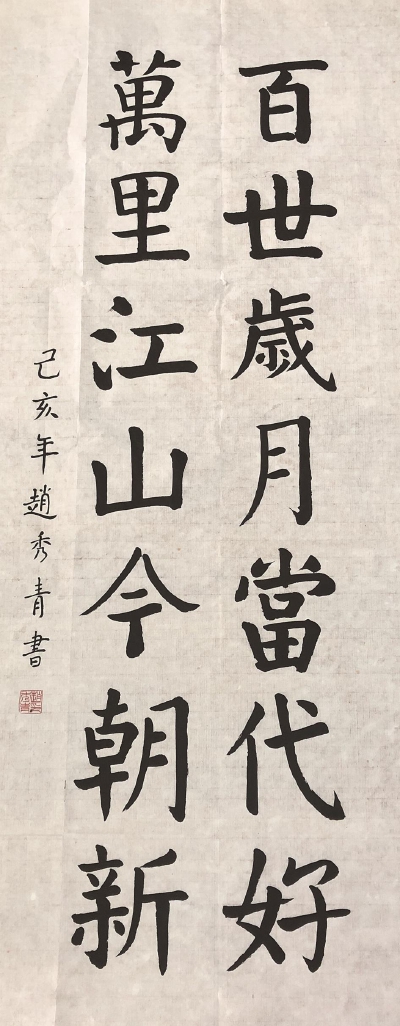 百世歲月當代好
萬里江山今朝新
己亥年趙秀青書